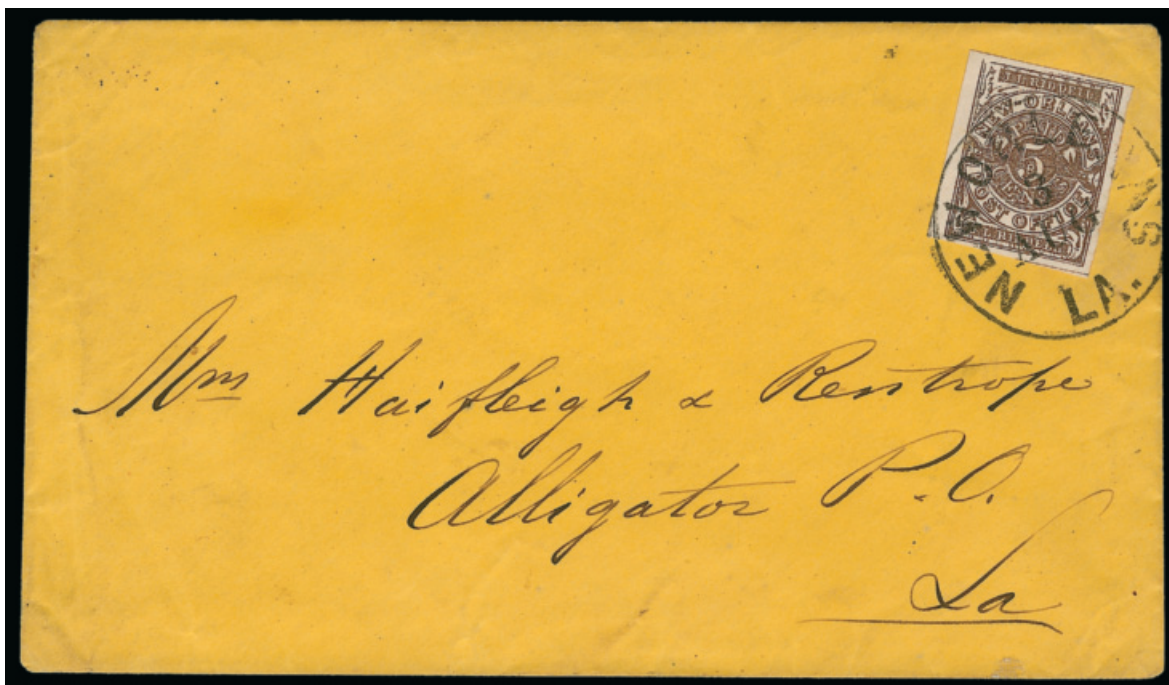 J.L. RIDDELL
NEW-ORLEANS
PAID
5
CENTS
POST OFFICE
NEW ORLEANS LA.
Mm Haifleigh & Rentrope
Alligator P.O.
La